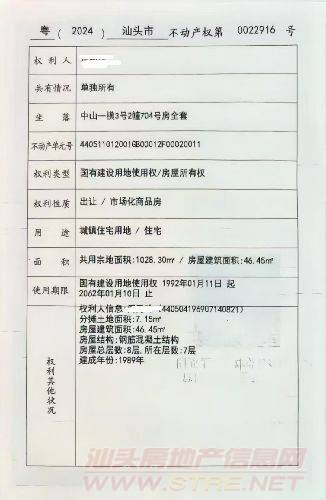 粤（2024）汕头市 不动产权第 0022916 号
权利人
共有情况 单独所有
坐落 中山一横3号2幢704号房全套
不动产单元号 440511012001GB00012F00020011
权利类型 国有建设用地使用权/房屋所有权
权利性质 出让 / 市场化商品房
用途 城镇住宅用地 / 住宅
面积 共用宗地面积:1028.30㎡ / 房屋建筑面积:46.45㎡
使用期限 国有建设用地使用权 1992年01月11日 起
2062年01月10日 止
权利其他状况
权利人信息:
440504196907140821)
分摊土地面积:7.15㎡
房屋建筑面积:46.45㎡
房屋结构:钢筋混凝土结构
房屋总层数:8层,所在层数:7层
建成年份:1989年
汕头房地产信息网
WWW.STRE.NET